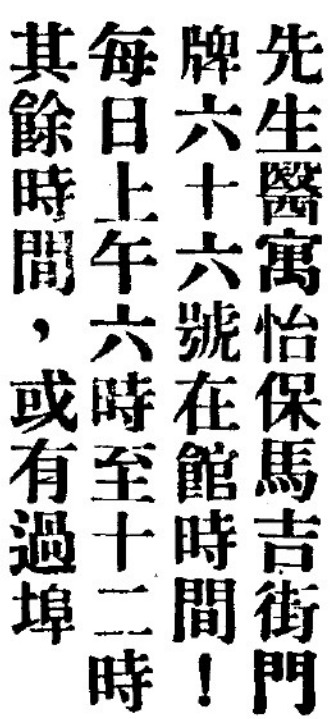 先生醫寓怡保馬吉街門
牌六十六號在館時間！
每日上午六時至十二時
其餘時間，或有過埠